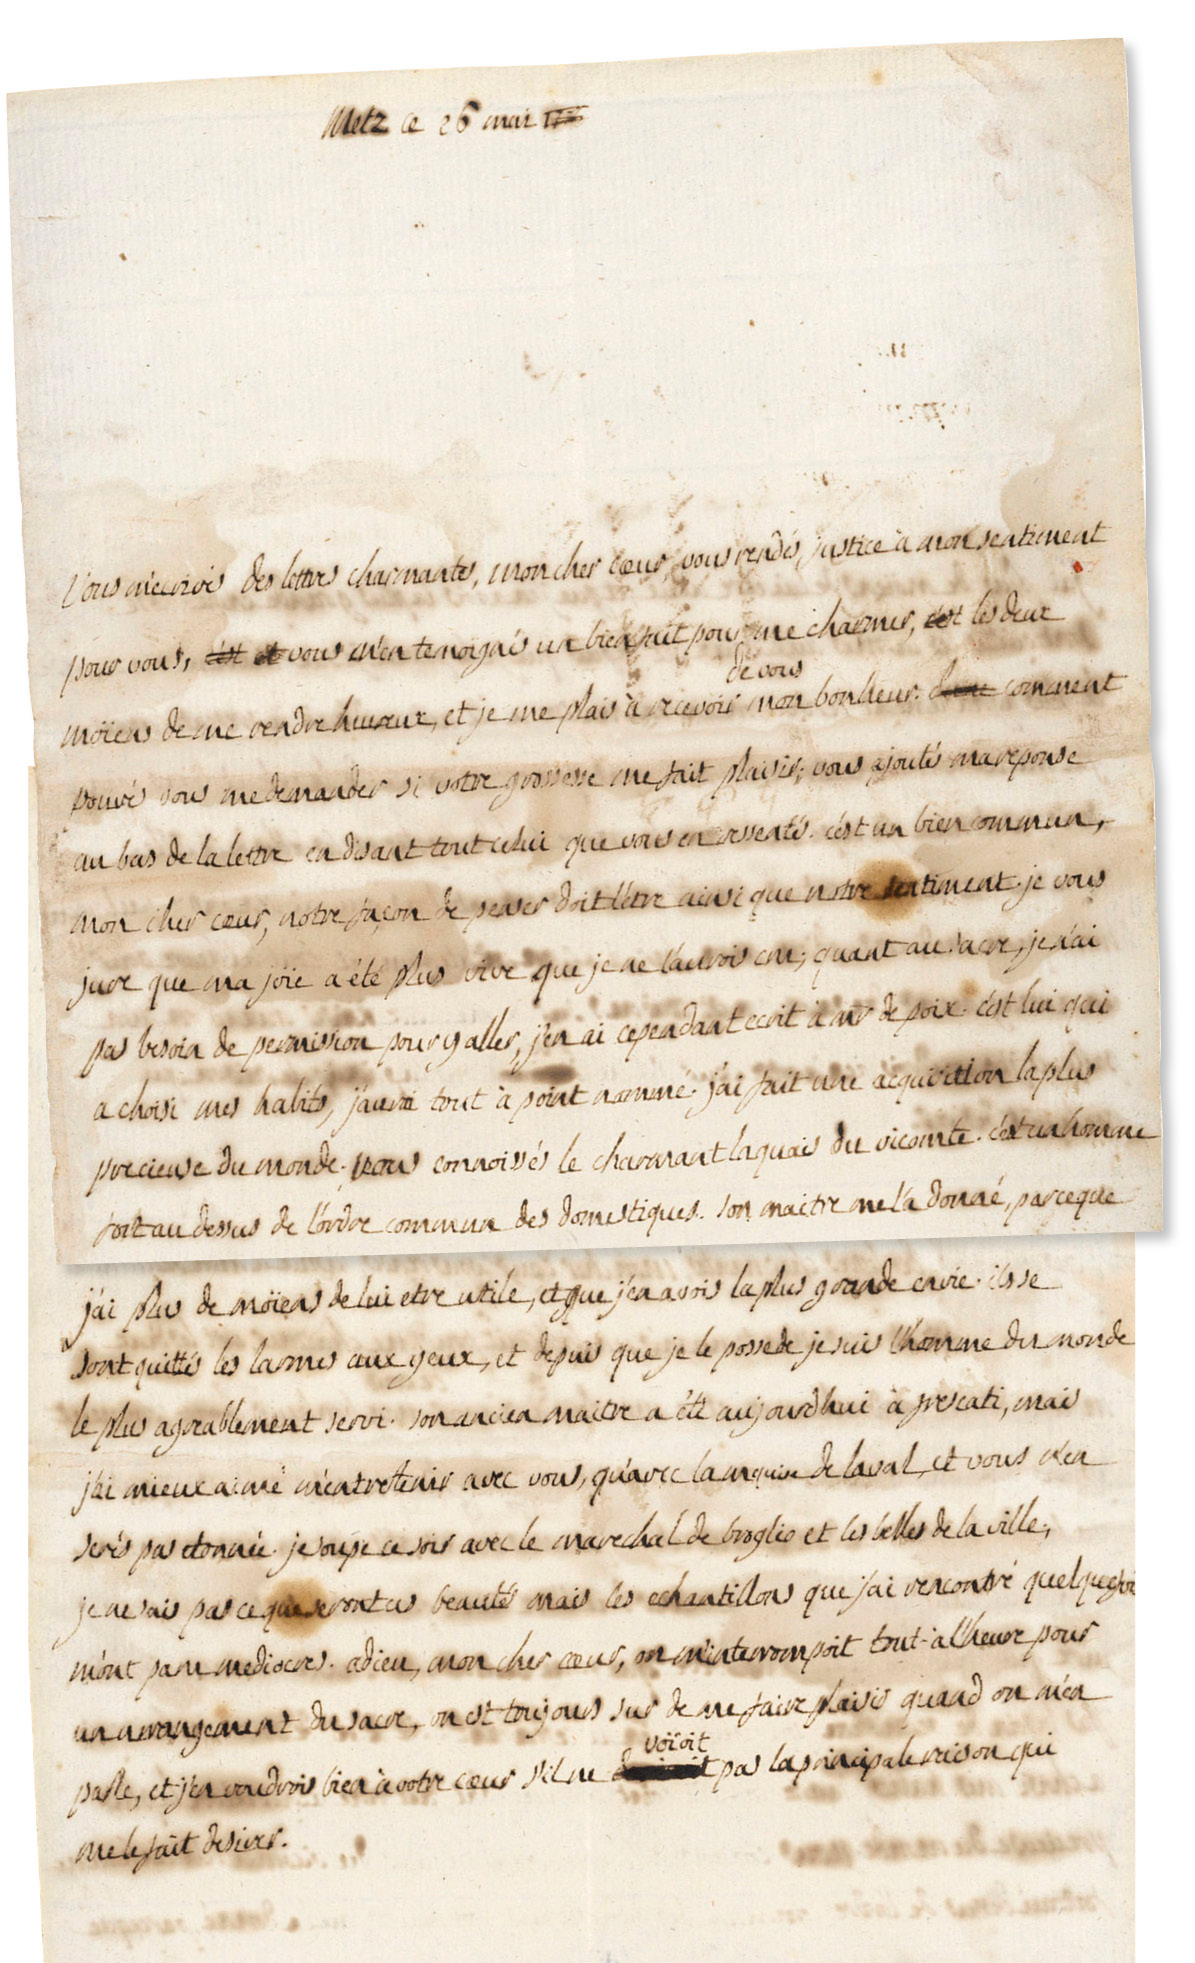 Metz ce 26 mai
Vous m'ecrivés des lettres charmantes, mon cher cœur, vous rendés justice à mon sentiment
pour vous, c'est et vous m'en temoignés un bien fait pour me charmer, c'est les deux
de vous
moïens de me rendre heureux, et je me plais à recevoir mon bonheur. comment
pouvés vous me demander si votre grossesse me fait plaisir; vous ajoutés ma reponse
au bas de la lettre en disant tout celui que vous en ressentés. c'est un bien commun,
mon cher cœur, notre façon de penser doit l'être ainsi que notre sentiment. je vous
jure que ma joie a été plus vive que je ne l'aurois cru; quant au sacre, je n'ai
pas besoin de permission pour y aller, j'en ai cependant ecrit à mr de poix. c'est lui qui
a choisi mes habits, j'aurai tout à point nommé. j'ai fait une acquisition la plus
precieuse du monde. vous connoissés le charmant laquais du vicomte. c'est un homme
fort au dessus de l'ordre commun des domestiques. son maitre me l'a donné, parceque
j'ai plus de moïens de lui etre utile, et que j'en avois la plus grande envie. ils se
sont quittés les larmes aux yeux, et depuis que je le possede je suis l'homme du monde
le plus agreablement servi. son ancien maitre a été aujourdhui à frescati, mais
j'ai mieux aimé m'entretenir avec vous, qu'avec la mquise de laval, et vous n'en
serés pas etonnée. je soupe ce soir avec le marechal de broglio et les belles de la ville,
je ne sais pas ce que seront ces beautés mais les echantillons que j'ai rencontré quelquefois
m'ont paru mediocres. adieu, mon cher cœur, on m'interrompoit tout-à l'heure pour
un arrangement du sacre, on est toujours sur de me faire plaisir quand on m'en
voïoit
parle, et j'en voudrois bien à votre cœur s'il ne pas la principale raison qui
me le fait desirer.